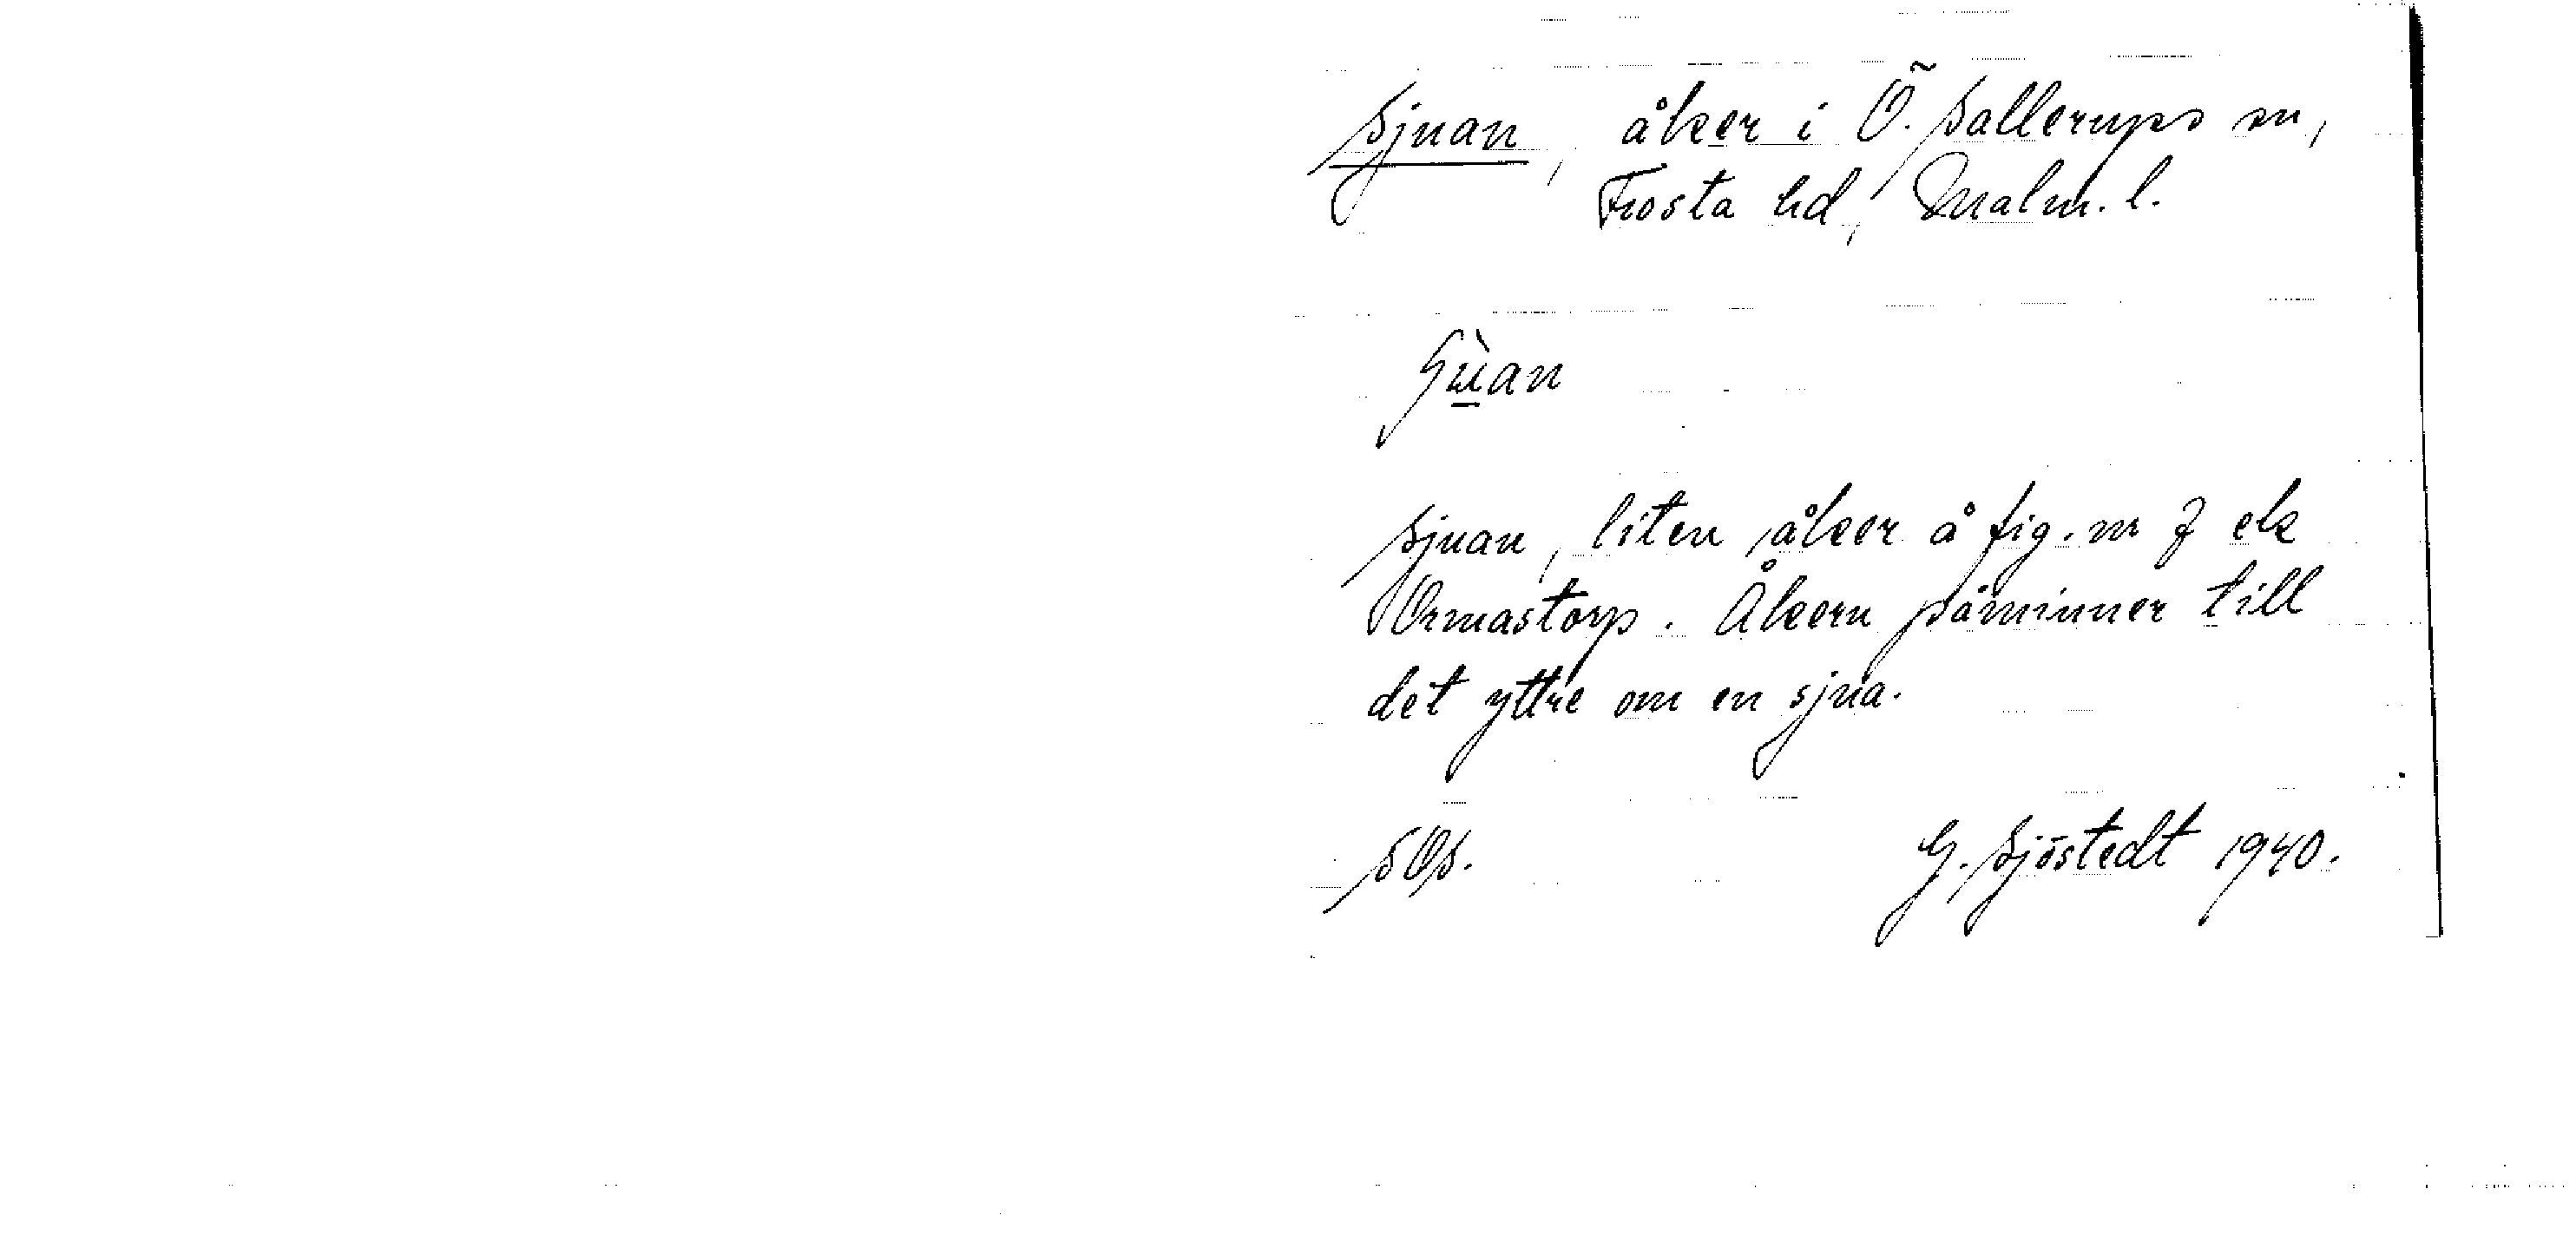 Sjuan, åker i Ö. Sallerups sn,
Frosta hd, Malm. l.
Sjuan, liten åker å fig. nr 7 ek
Ormastorp. Åkern påminner till
det yttre om en sjua.
SOS.
G. Sjöstedt 1940.